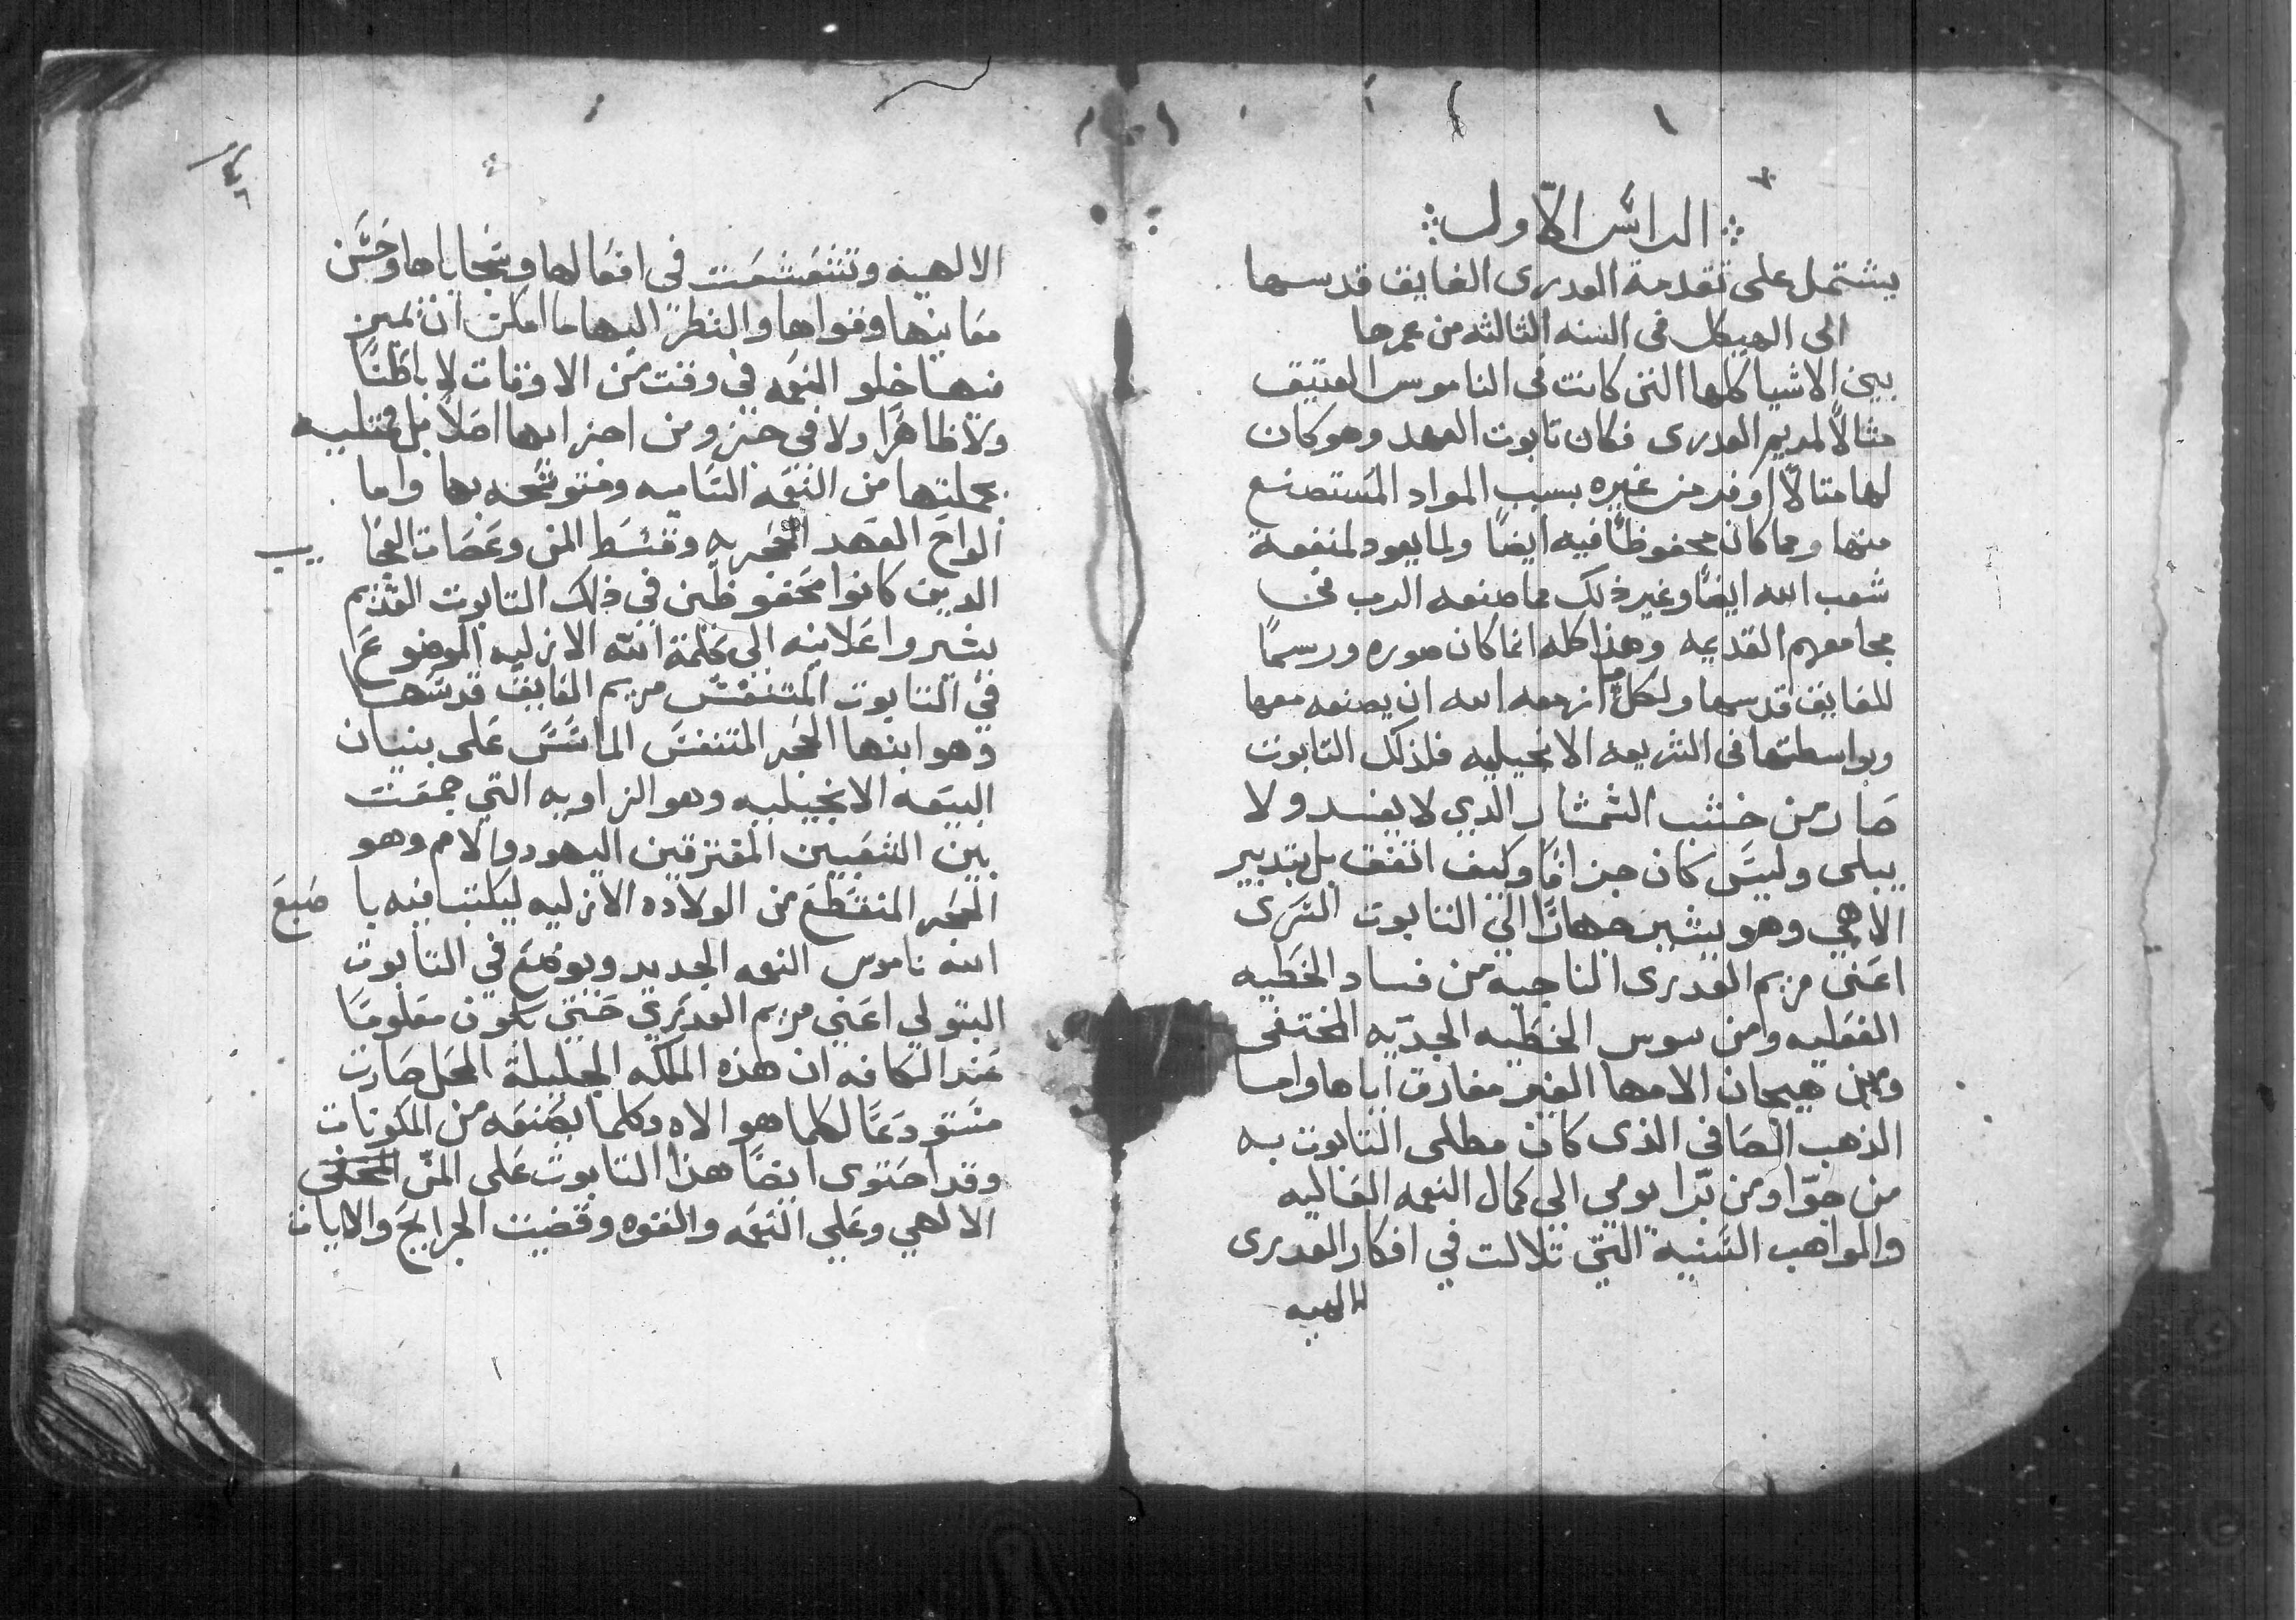 الراس الاول
يشتمل على تقدمة العدرى الفايق قدسها
الى الهيكل فى السنه الثالثه من عمرها
بين الاشيا كلها التى كانت فى الناموس العتيق
مثالاً لمريم العدرى فكان تابوت العهد وهو كان
لها مثالاً اوفر من غيره بسبب المواد المستصنع
منها ومما كان محفوظاً فيه ايضاً ولما يعود لمنفعة
شعب الله ايضاً وغير ذلك مما صنعه الرب فى
مجامعهم القديمه وهذا كله انما كان صوره ورسماً
للفايق قدسها ولكل ما ازمعه الله ان يصنعه معها
وبواسطتها فى الشريعه الانجيليه فلذلك التابوت
صار من خشب الشمشار الدي لا يفسد ولا
يبلى وليس كان جزافاً وكيف اتفق بل بتدبير
الاهي وهو يشير جهاراً الي التابوت السرى
اعنى مريم العدرى الناجيه من فساد الخطيه
الفعليه ومن سوس الخطيه الجديه المختفى
ومن هيجان الامها الغير مفارق اياها واما
الذهب الصافى الذى كان مطلى التابوت به
من جوا ومن برا يومى الي كمال النعمه العاليه
والمواهب السنيه التي تلالت في افكار العدرى
الالهيه
الالهيه وتشعشعت فى افعالها وسجاياها وحسن
معاينها وقواها والنظر اليها ما امكن ان نميز
منها خلو النعمه في وقت من الاوقات لا باطناً
ولا ظاهراً ولا في جز ومن اجزايها اصلاً بل ممتليه
بجملتها من النعمه التاميه ومتوشحه بها واما
الواح العهد الحجريه وقسط المن وعصات العجايب
الدين كانوا محفوظين في ذلك التابوت القديم
يشيروا اعلانيه الي كلمة الله الازليه الموضوع
في التابوت المتنفس مريم الفايق قدسها
وهو ابنها الحجر المتنفس الماسس على بنيان
البيعه الانجيليه وهو الزاويه التي جمعت
بين الشعبين المفترقين اليهود والامم وهو
الحجر المنقطع من الولاده الازليه ليكتب فيه باصبع
الله ناموس النعمه الجديد ويوضع في التابوت
البتولي اعني مريم العدري حتي يكون معلوماً
عند الكافه ان هذه الملكه الجليلة المحل صارت
مستودعاً لكلما هو الاه وكلما يصنعه من المكونات
وقد احتوى ايضاً هذا التابوت على المن المخفى
الالهي وعلي النعمه والقوه وقضيت الجرايح والايات